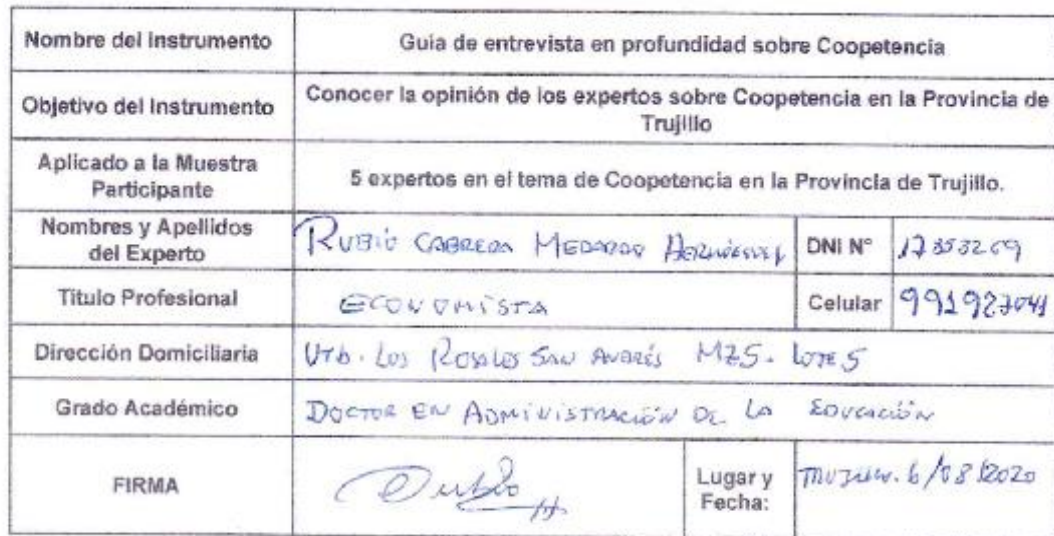 Nombre del Instrumento Guia de entrevista en profundidad sobre Coopetencia
Objetivo del Instrumento Conocer la opinión de los expertos sobre Coopetencia en la Provincia de
Trujillo
Aplicado a la Muestra
Participante 5 expertos en el tema de Coopetencia en la Provincia de Trujillo.
Nombres y Apellidos
del Experto RUBIO CABRERA MEDARDO DNI Nº
Titulo Profesional ECONOMISTA Celular 991927041
Dirección Domiciliaria Urb. Los Rosales San Andrés MZ5. LOTE 5
Grado Académico DOCTOR EN ADMINISTRACIÓN DE LA EDUCACIÓN
FIRMA Lugar y
Fecha: 6/08/2020